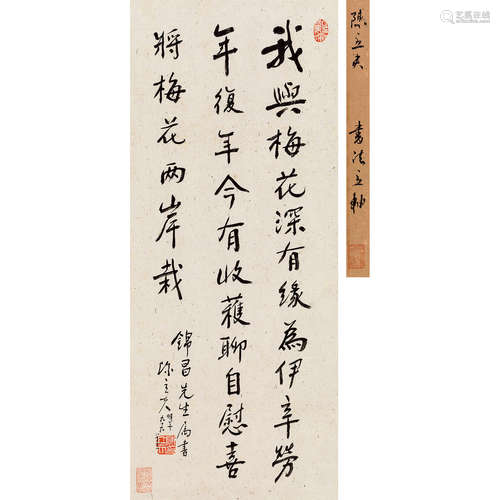 我與梅花深有緣為伊辛勞
年復年今有收穫聊自慰喜
將梅花兩岸栽
錦昌先生屬書
陳立夫 時年九十六
陳立夫 書法立軸